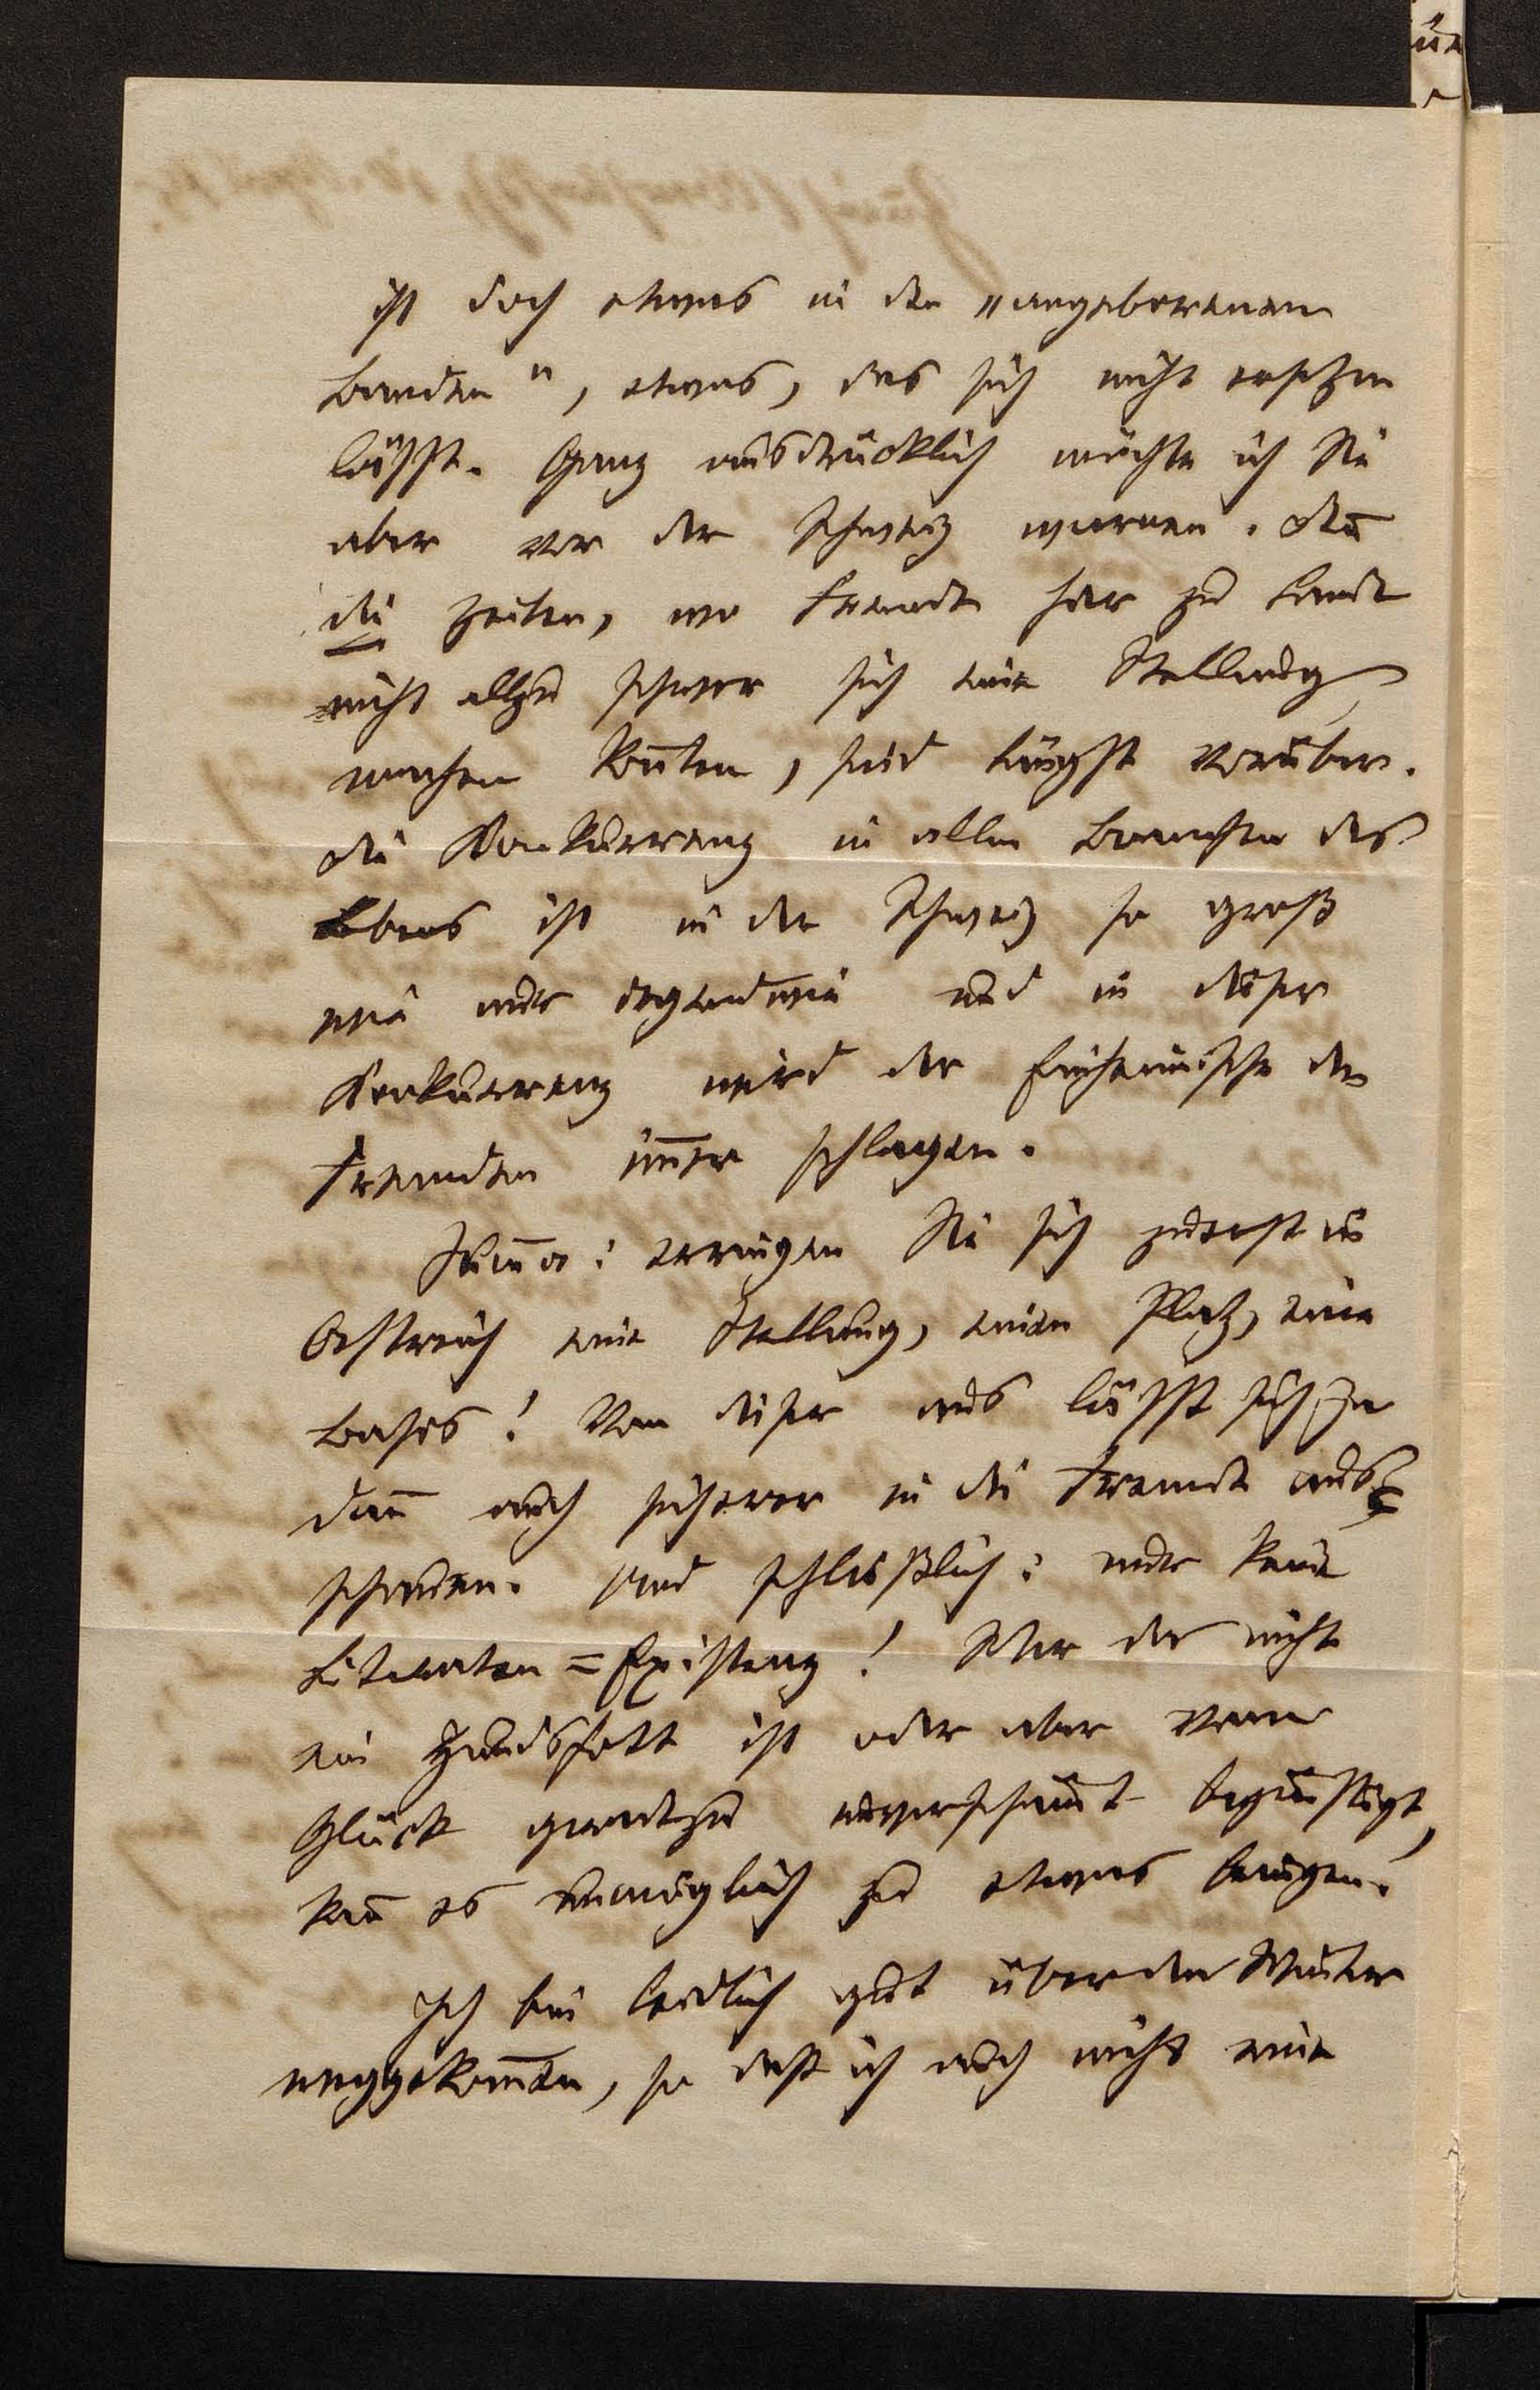 ist doch etwas in den „angeborenen
Banden", etwas, das sich nicht ersetzen
lässt. Ganz ausdrücklich möchte ich Sie
aber vor der Schweiz warnen. Deñ
die Zeiten, wo Fremde hier zu Lande
nicht allzu schwer sich eine Stellung
machen koñten, sind längst vorüber.
Die Konkurrenz in allen Branchen des
Lebens ist in der Schweiz so groß
wie nur irgendwie und in dieser
Konkurrenz wird der Einheimische den
Fremden im̄er schlagen.
Sum̄a: erringen Sie sich zuerst in
Oestreich eine Stellung, einen Platz, eine
Basis! Von dieser aus lässt sich ja
dañ auch sicherer in die Fremde aus
schauen. Und schließlich: nur keine
Literaten=Existenz! Wer da nicht
ein Hundsfott ist oder aber vom
Glück geradezu unverschämt begünstigt,
kañ es unmöglich zu etwas bringen.
Ich bin leidlich gut über den Winter
weggekom̄en, so daß ich auch nicht eine